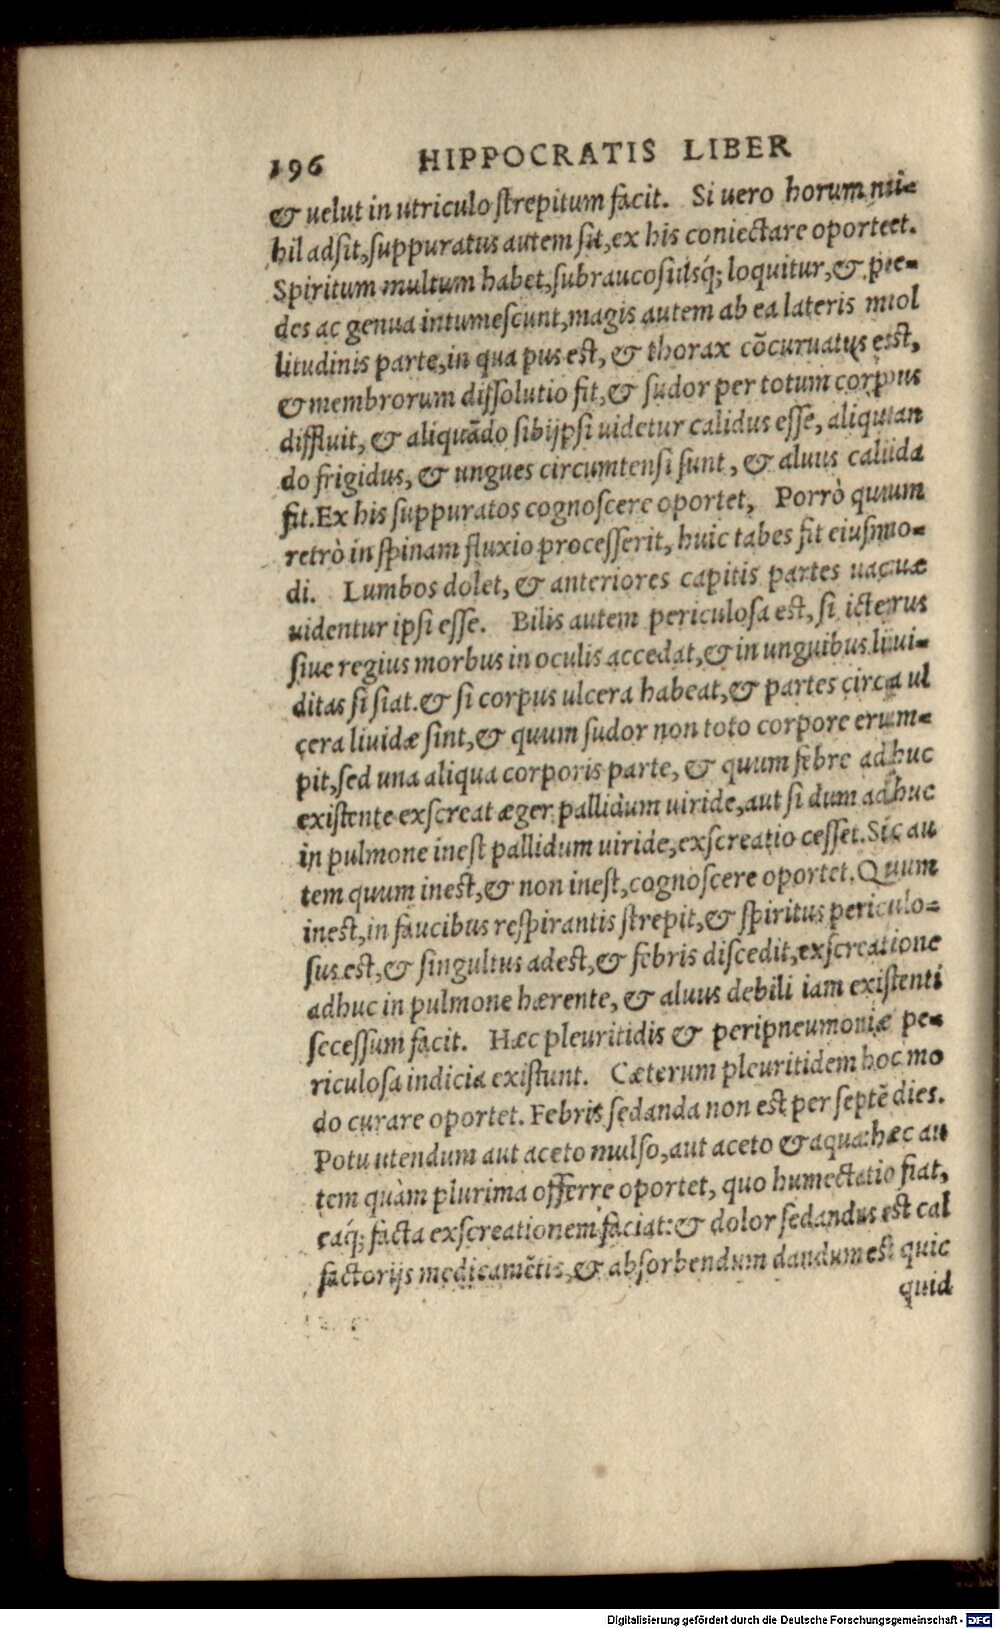 196 HIPPOCRATIS LIBER
& uelut in utriculo strepitum facit. Si uero horum ni-
hil adsit, suppuratus autem sit, ex his coniectare oportet.
Spiritum multum habet, subraucosiusq́; loquitur, & pe-
des ac genua intumescunt, magis autem ab ea lateris mol
litudinis parte, in qua pus est, & thorax cõcuruatus est,
& membrorum dissolutio fit, & sudor per totum corpus
diffluit, & aliquãdo sibijpsi uidetur calidus esse, aliquan
do frigidus, & ungues circumtensi sunt, & aluus calida
fit. Ex his suppuratos cognoscere oportet, Porrò quum
retrò in spinam fluxio processerit, huic tabes fit eiusmo-
di. Lumbos dolet, & anteriores capitis partes uacuæ
uidentur ipsi esse. Bilis autem periculosa est, si icterus
siue regius morbus in oculis accedat, & in unguibus liui-
ditas si siat. & si corpus ulcera habeat, & partes circa ul
cera liuidæ sint, & quum sudor non toto corpore erum-
pit, sed una aliqua corporis parte, & quum febre adhuc
existente exscreat æger pallidum uiride, aut si dum adhuc
in pulmone inest pallidum uiride, exscreatio cesset. Sic au
tem quum inest, & non inest, cognoscere oportet. Quum
inest, in faucibus respirantis strepit, & spiritus periculo-
sus est, & singultus adest, & febris discedit, exscreatione
adhuc in pulmone hærente, & aluus debili iam existenti
secessum facit. Hæc pleuritidis & peripneumoniæ pe-
riculosa indicia existunt. Cæterum pleuritidem hoc mo
do curare oportet. Febris sedanda non est per septẽ dies.
Potu utendum aut aceto mulso, aut aceto & aqua: hæc au
tem quàm plurima offerre oportet, quo humectatio fiat,
eaq́; facta exscreationem faciat: & dolor sedandus est cal
factorijs medicamẽtis, & absorbendum dandum est quic
quid
Digitalisierung gefördert durch die Deutsche Forschungsgemeinschaft - DFG